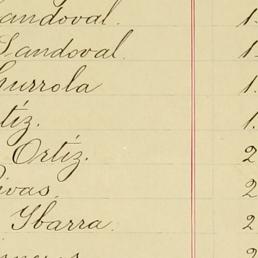 Sandoval. 1
Sandoval. 1
Gurrola 1
tíz. 1.
Ortíz. 2
ivas. 2
Ybarra. 2
2